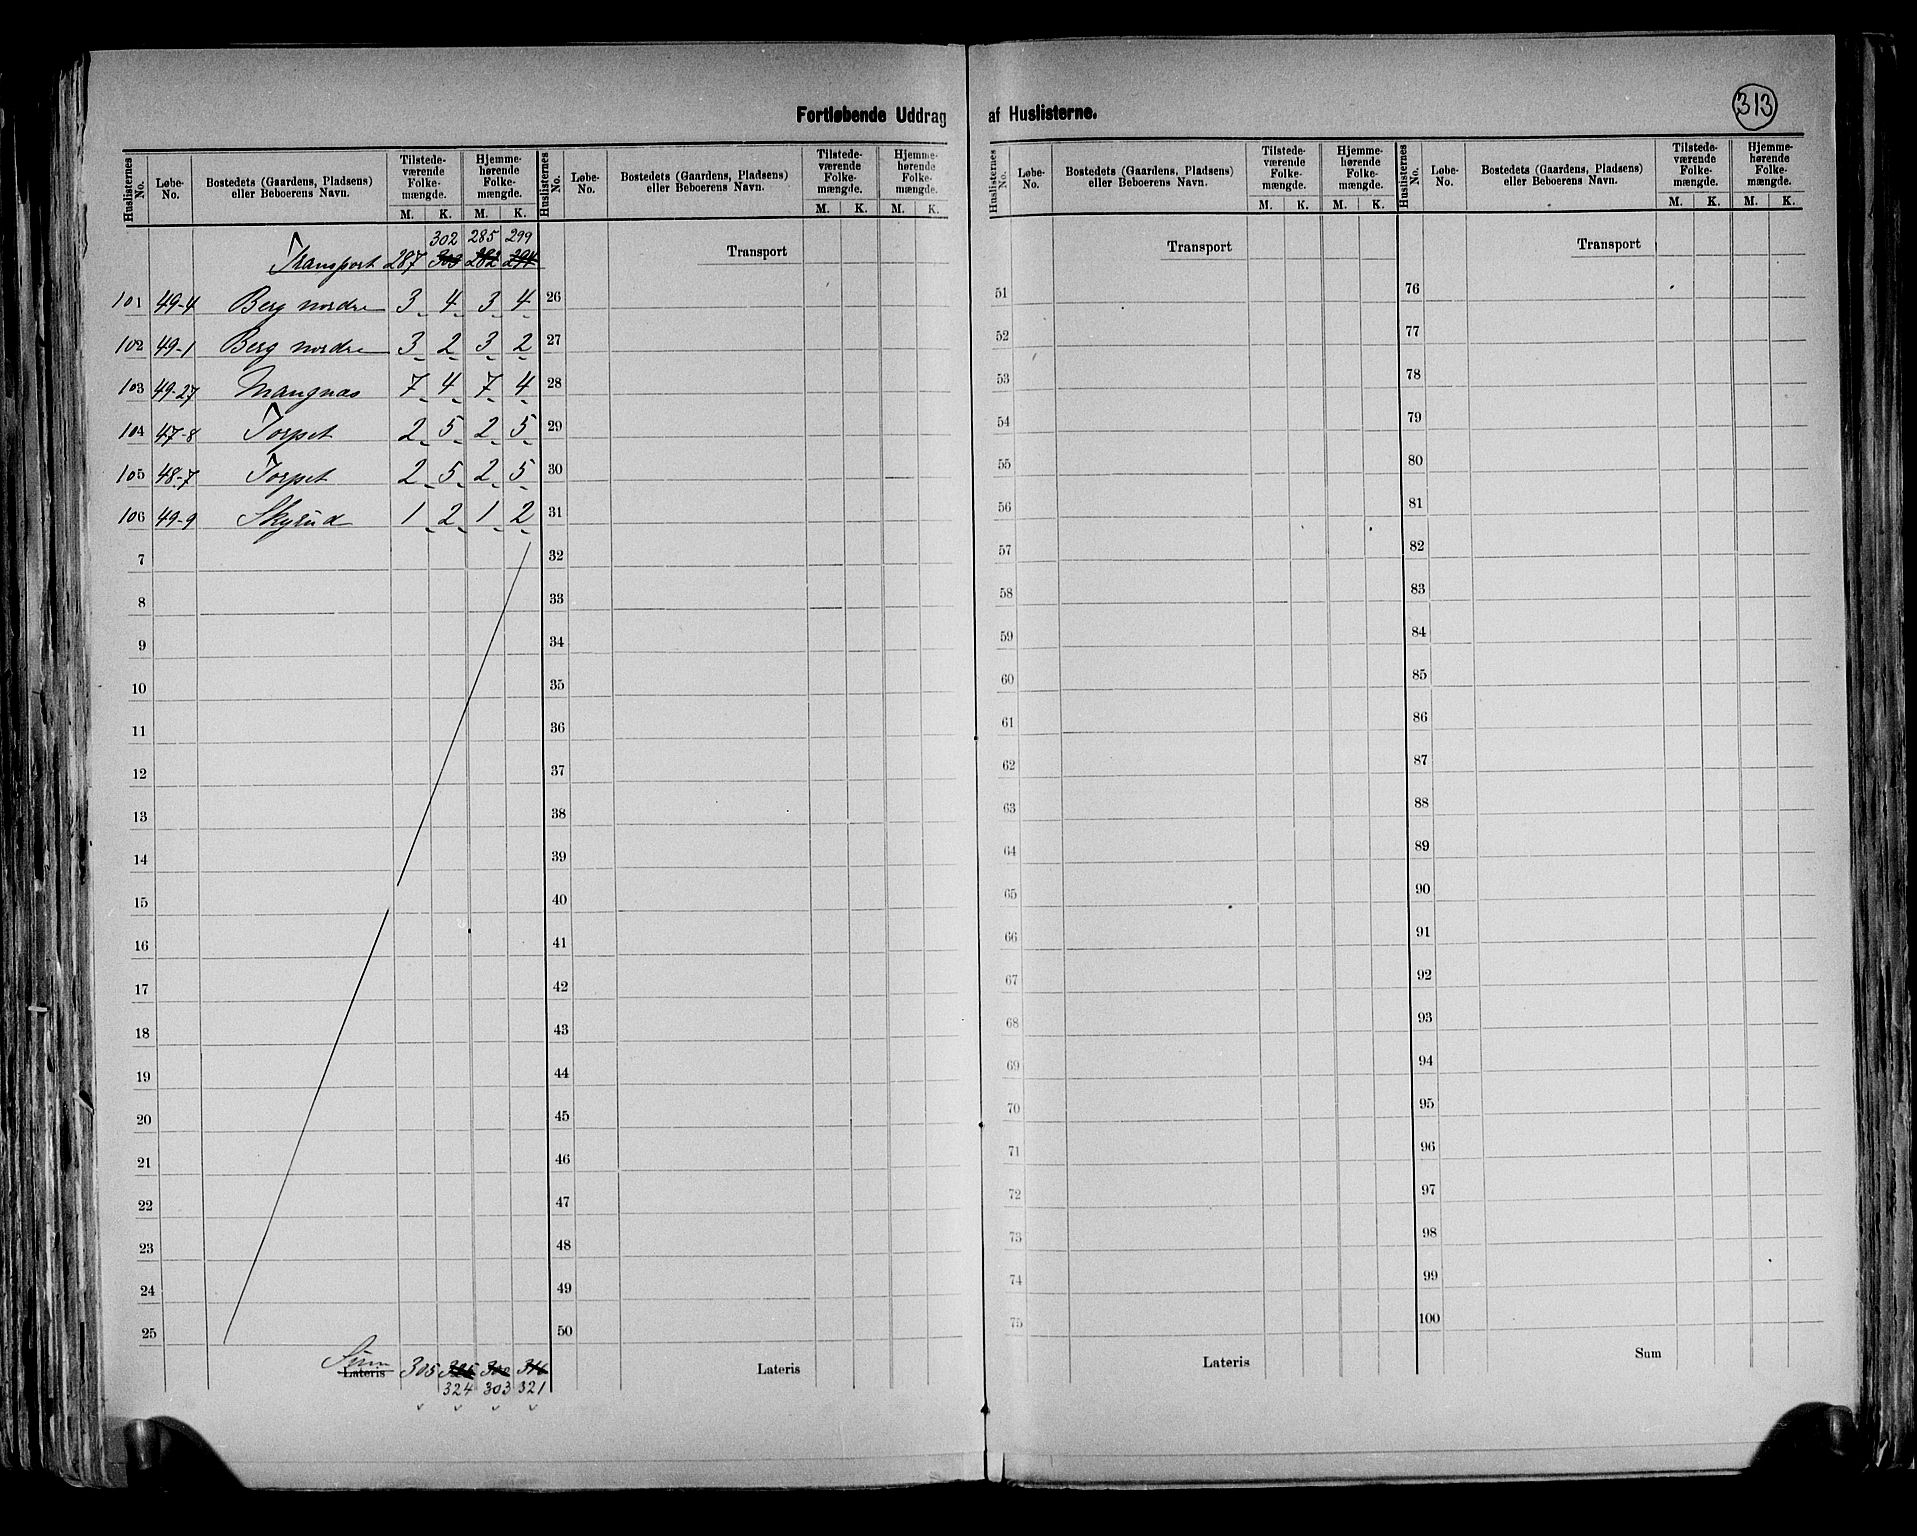 Fortløbende Uddrag af Huslisterne.
313
Huslisternes No. | Løbe-No. | Bostedets (Gaardens, Pladsens) eller Beboerens Navn. | Tilstedeværende Folkemængde. M. K. | Hjemmehørende Folkemængde. M. K.
302 285 299
Transport 287 303 282 294
101 49-4 Berg nordre 3 4 3 4
102 49-1 Berg nordre 3 2 3 2
103 49-27 Mangnas 7 4 7 4
104 47-8 Torpet 2 5 2 5
105 48-7 Torpet 2 5 2 5
106 49-9 Skyrud 1 2 1 2
7
8
9
10
11
12
13
14
15
16
17
18
19
20
21
22
23
24
25
Sum
Lateris 305 325 300 316
324 303 321
Huslisternes No. | Løbe-No. | Bostedets (Gaardens, Pladsens) eller Beboerens Navn. | Tilstedeværende Folkemængde. M. K. | Hjemmehørende Folkemængde. M. K.
Transport
26
27
28
29
30
31
32
33
34
35
36
37
38
39
40
41
42
43
44
45
46
47
48
49
50
Lateris
Huslisternes No. | Løbe-No. | Bostedets (Gaardens, Pladsens) eller Beboerens Navn. | Tilstedeværende Folkemængde. M. K. | Hjemmehørende Folkemængde. M. K.
Transport
51
52
53
54
55
56
57
58
59
60
61
62
63
64
65
66
67
68
69
70
71
72
73
74
75
Lateris
Huslisternes No. | Løbe-No. | Bostedets (Gaardens, Pladsens) eller Beboerens Navn. | Tilstedeværende Folkemængde. M. K. | Hjemmehørende Folkemængde. M. K.
Transport
76
77
78
79
80
81
82
83
84
85
86
87
88
89
90
91
92
93
94
95
96
97
98
99
100
Sum